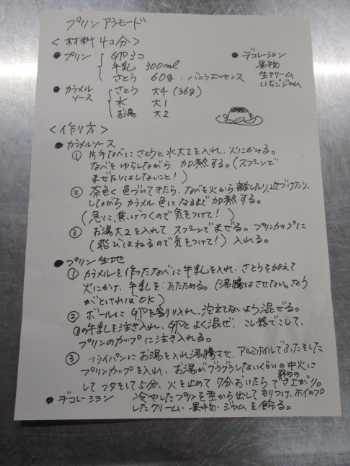 プリンアラモード
<材料 4コ分>
● プリン 卵 3コ
牛乳 300ml
さとう 60g バニラエッセンス
● カラメルソース さとう 大4 (36g)
水 大1
お湯 大2
● デコレーション
果物
生クリーム
いちごジャム
<作り方>
● カラメルソース
① 片手なべにさとうと水大1を入れ、火にかける。
なべをゆらしながら 加熱する。(スプーンで
まぜたりはしないこと!)
② 茶色く色づいてきたら、なべを火から離したり、近づけたり、
しながら カラメル色になるまで 加熱する。
(急に、焦げつくので気をつけて!)
③ お湯大2を入れて スプーンでまぜる。プリンカップに
(飛びはねるので気をつけて!) 入れる。
● プリン生地
① カラメルを作ったなべに牛乳を入れ、さとうを加えて
火にかけ、牛乳をあたためる。(沸騰はさせない。
がとければOK)
② ボールに卵を割り入れ、泡立てないよう混ぜる。
①の牛乳を注ぎ入れ、卵とよく混ぜ、こし器でこして、
プリンのカップに注ぎ入れる。
③ フライパンにお湯を入れ沸騰させ、アルミホイルでふたをした
プリンカップを入れ、お湯がグラグラしないくらいの中火に
して フタをして5分、火を止めて 7分おいたら でき上がり。
● デコレーション 冷やしたプリンを器から出してもりつけ、ホイップ
したクリーム・果物・ジャムを飾る。